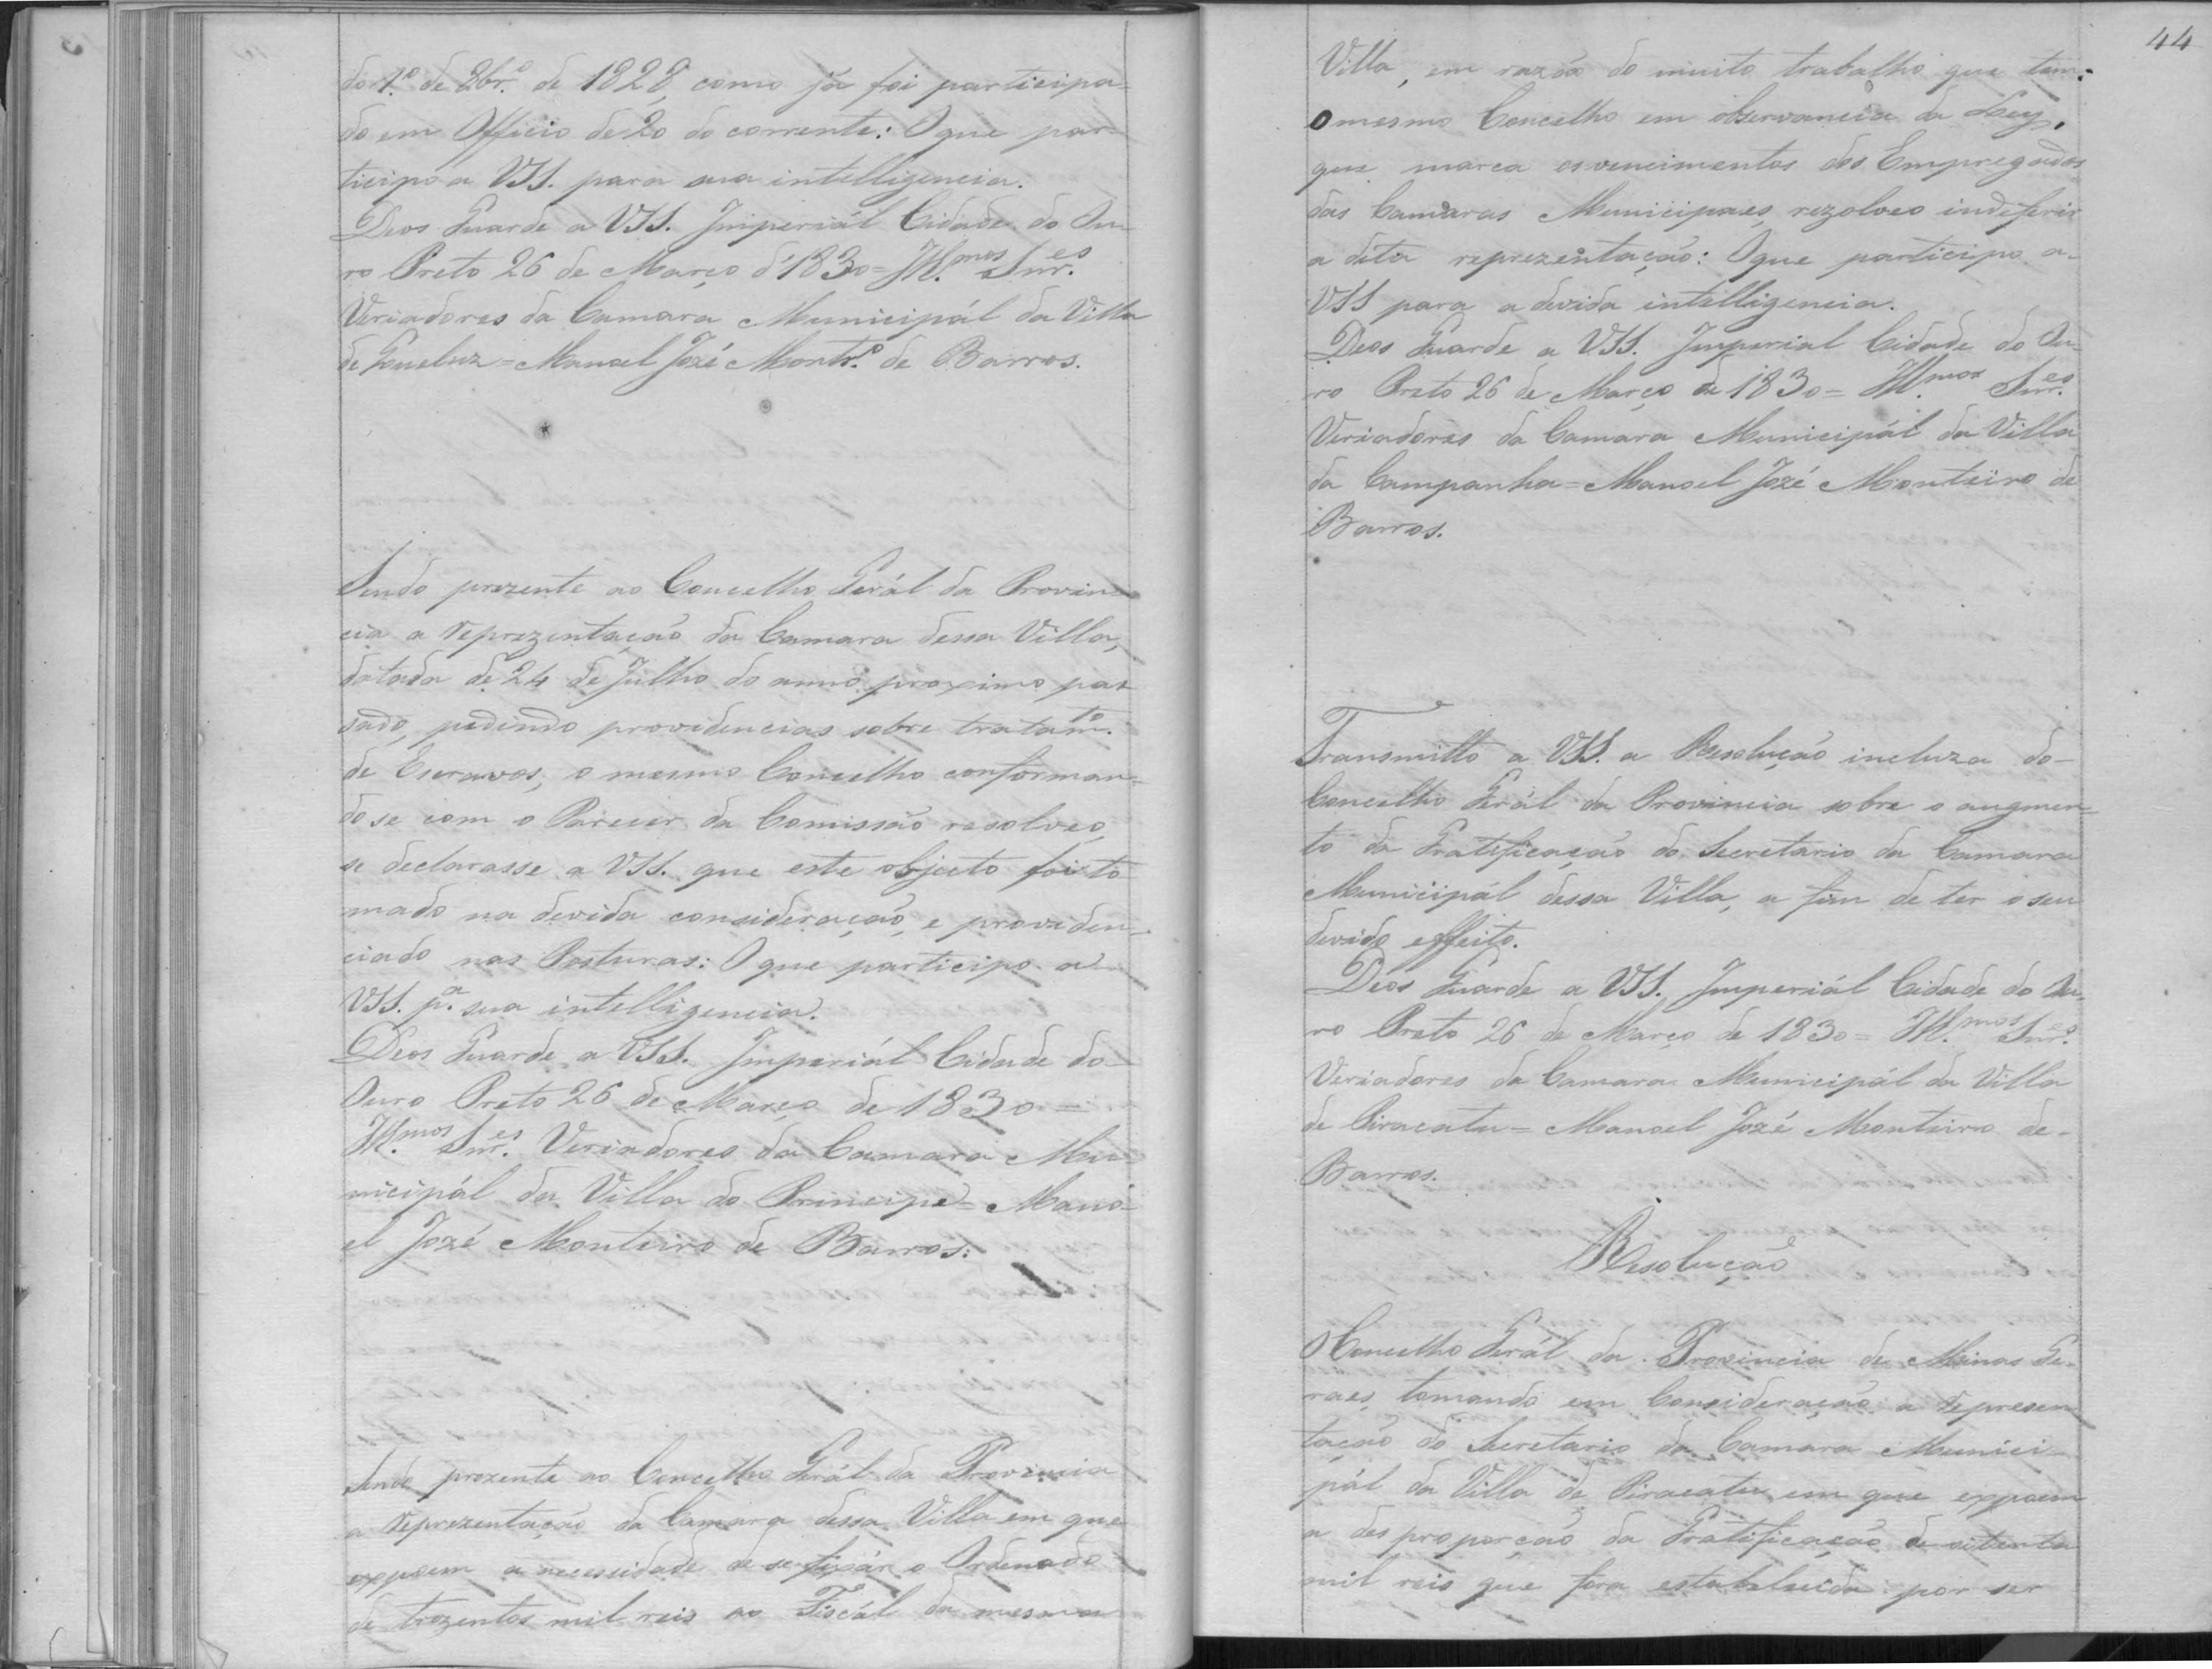 do 1.º de 8br.º de 1828, como já foi participa-
do em Officio de 20 do corrente: O que par-
ticipo a VSS. para sua intelligencia.
Deos Guarde a VSS. Imperiál Cidade do Ou-
ro Preto 26 de Março d'1830 = Ill.mos Snr.es
Veriadores da Camara Municipál da Villa
de Queluz = Manoel José Montr.º de Barros.
Sendo prezente ao Concelho Gerál da Provin-
cia a reprezentação da Camara dessa Villa,
datada de 24 de Julho do anno proximo pas
sado, pedindo providencias sobre tratam.to
de Escravos, o mesmo Concelho conforman-
do se com o Parecer da Comissão resolveo,
se declarasse a VSS. que este objecto foi to
mado na devida consideração, e providen-
ciado nas Posturas: O que participo a
VSS. p.a sua intelligencia.
Deos Guarde a VSS. Imperiál Cidade do
Ouro Preto 26 de Março de 1830 =
Ill.mos Snr.es Veriadores da Camara Mu-
nicipál da Villa do Principe = Mano-
el José Monteiro de Barros.
Sendo prezente ao Concelho Gerál da Provincia
a reprezentação da Camara dessa Villa em que
expoem a necessidade de se fixár o Ordenado
de trezentos mil reis ao Fiscál da mesma
44
Villa, em razão do muito trabalho que tem:
O mesmo Concelho em observancia da Ley,
que marca os vencimentos dos Empregados
das Camaras Municipaes, rezolveo indeferir
a dita reprezentação: O que participo a
VSS para a devida intelligencia.
Deos Guarde a VSS. Imperial Cidade do Ou-
ro Preto 26 de Março de 1830 = Ill.mos Snr.es
Veriadores da Camara Municipál da Villa
da Campanha = Manoel José Monteiro de
Barros.
Transmitto a VSS. a Resolução incluza do
Concelho Gerál da Provincia sobre o augmen
to da Gratificação do Secretario da Camara
Municipál dessa Villa, a fim de ter o seu
devido effeito.
Deos Guarde a VSS. Imperiál Cidade do Ou-
ro Preto 26 de Março de 1830 = Ill.mos Snr.es
Veriadores da Camara Municipál da Villa
de Piracatu = Manoel José Monteiro de
Barros.
Resolução
O Concelho Gerál da Provincia de Minas Ge-
raes, tomando em Consideração a represen
tação do Secretario da Camara Munici-
pál da Villa de Piracatu em que expoem
a desproporção da Gratificação de oitenta
mil reis que fora estabelecida por ser